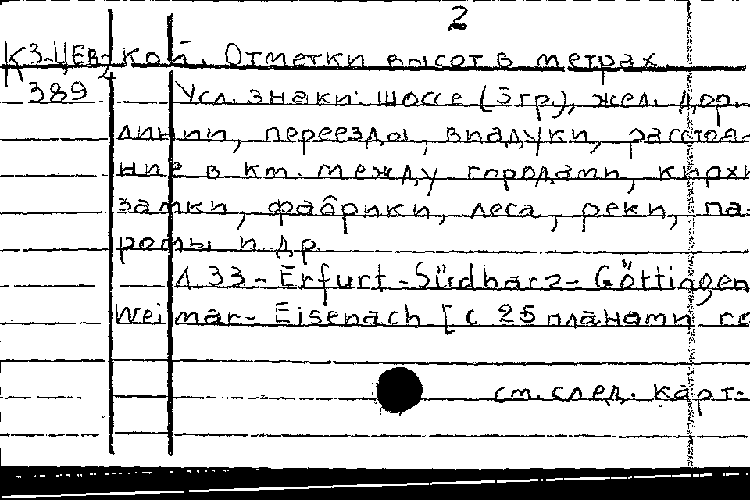 2
К 3-ЦЕв/4 кой. Отметки высот в метрах.
389 Усл. знаки: шоссе (3 гр.), жел. дор.
линии, переезды, виадуки, расстоя-
ние в км. между городами, кирхи
замки, фабрики, леса, реки, па-
ромы и др
Л 33 - Erfurt - Südharz - Göttingen
Weimar - Eisenach [с 25 планами го
см. след. карт.